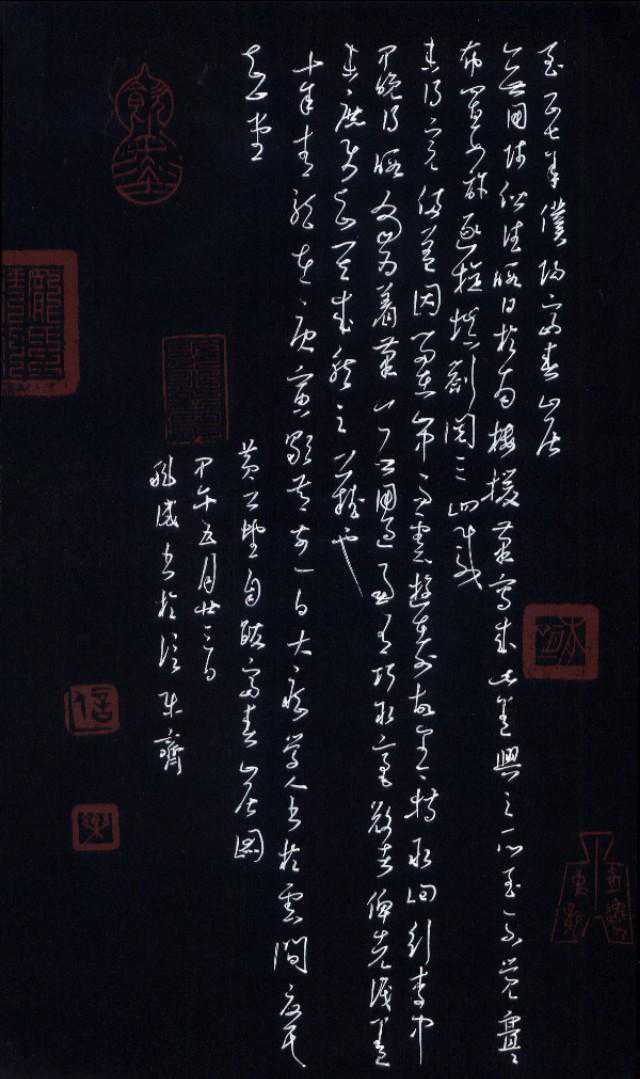 至正七年僕歸富春山居
無用師偕往暇日於南樓援筆寫成此卷興之所至不覺亹亹
布置如許逐旋填劄閱三四載
未得完備蓋因留在山中而雲遊在外故爾今特取回行李中
早晚得暇當為着筆無用過慮有巧取豪敚者俾先識卷
末庶使知其成就之難也
十年青龍在庚寅歜節前一日大癡學人書於雲間夏氏
知止堂
黃公望自跋富春山居圖
甲午五月廿三日
書於齋
信